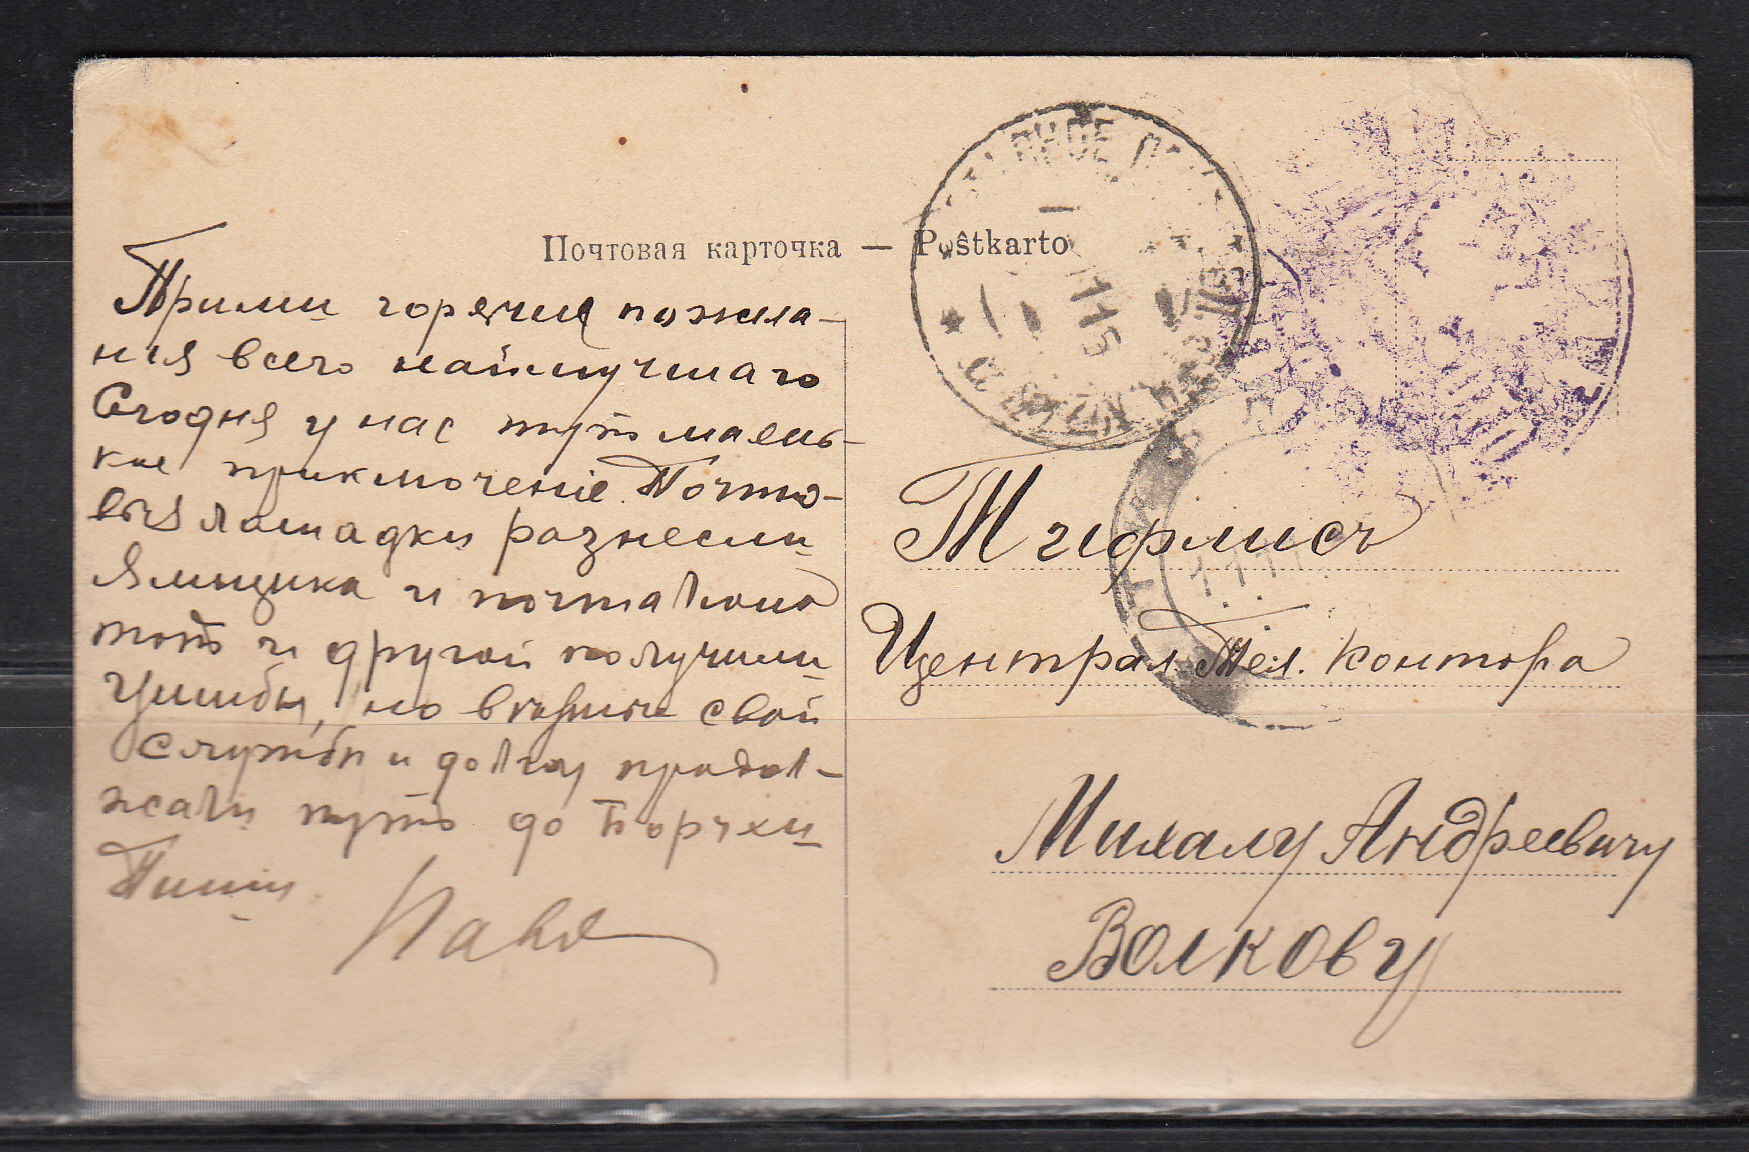 Почтовая карточка — Poŝtkarto
Прими горячие пожела-
ния всего найлучшаго
Сегодня у нас путь малень-
кое приключеніе. Почто-
выя лошадки разнесли
Ямщика и почталіона
тотъ и другой получили
Ушибы, но верные свой
службы и долгу продол-
жали путь до Борчхи
Пиши.
Павел
Тифлисъ
Централ. Тел. Контора
Михалу Андреевичу
Волкову